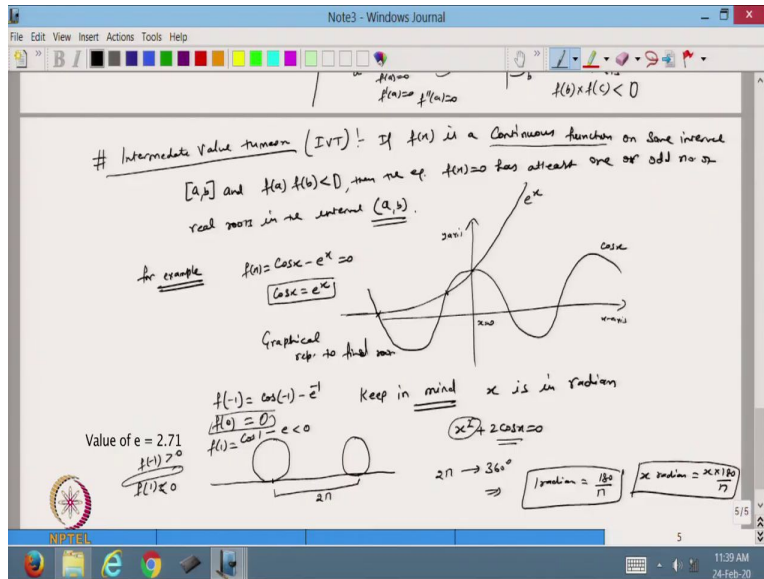 Note3 - Windows Journal
File Edit View Insert Actions Tools Help
f(a)=0
f'(a)=0 f''(a)=0
b
f(b)×f(c) < 0
# Intermediate Value theorem (IVT):- If f(x) is a Continuous function on some interval
[a,b] and f(a) f(b) < 0, then the eq. f(x)=0 has atleast one or odd no of
real roots in the interval (a,b).
e^x
y axis
cosx
for example f(x) = Cosx - e^x = 0
Cosx = e^x
x=0
x-axis
Graphical
rep. to find root
f(-1) = cos(-1) - e^-1 Keep in mind x is in radian
f(0) = 0
f(1) = cos1 - e < 0
x^2 + 2cosx=0
Value of e = 2.71
f(-1) > 0
f(1) < 0
2π
2π → 360°
⇒ 1 radian = 180/π x radian = x×180/π
NPTEL
5/5
5
11:39 AM
24-Feb-20